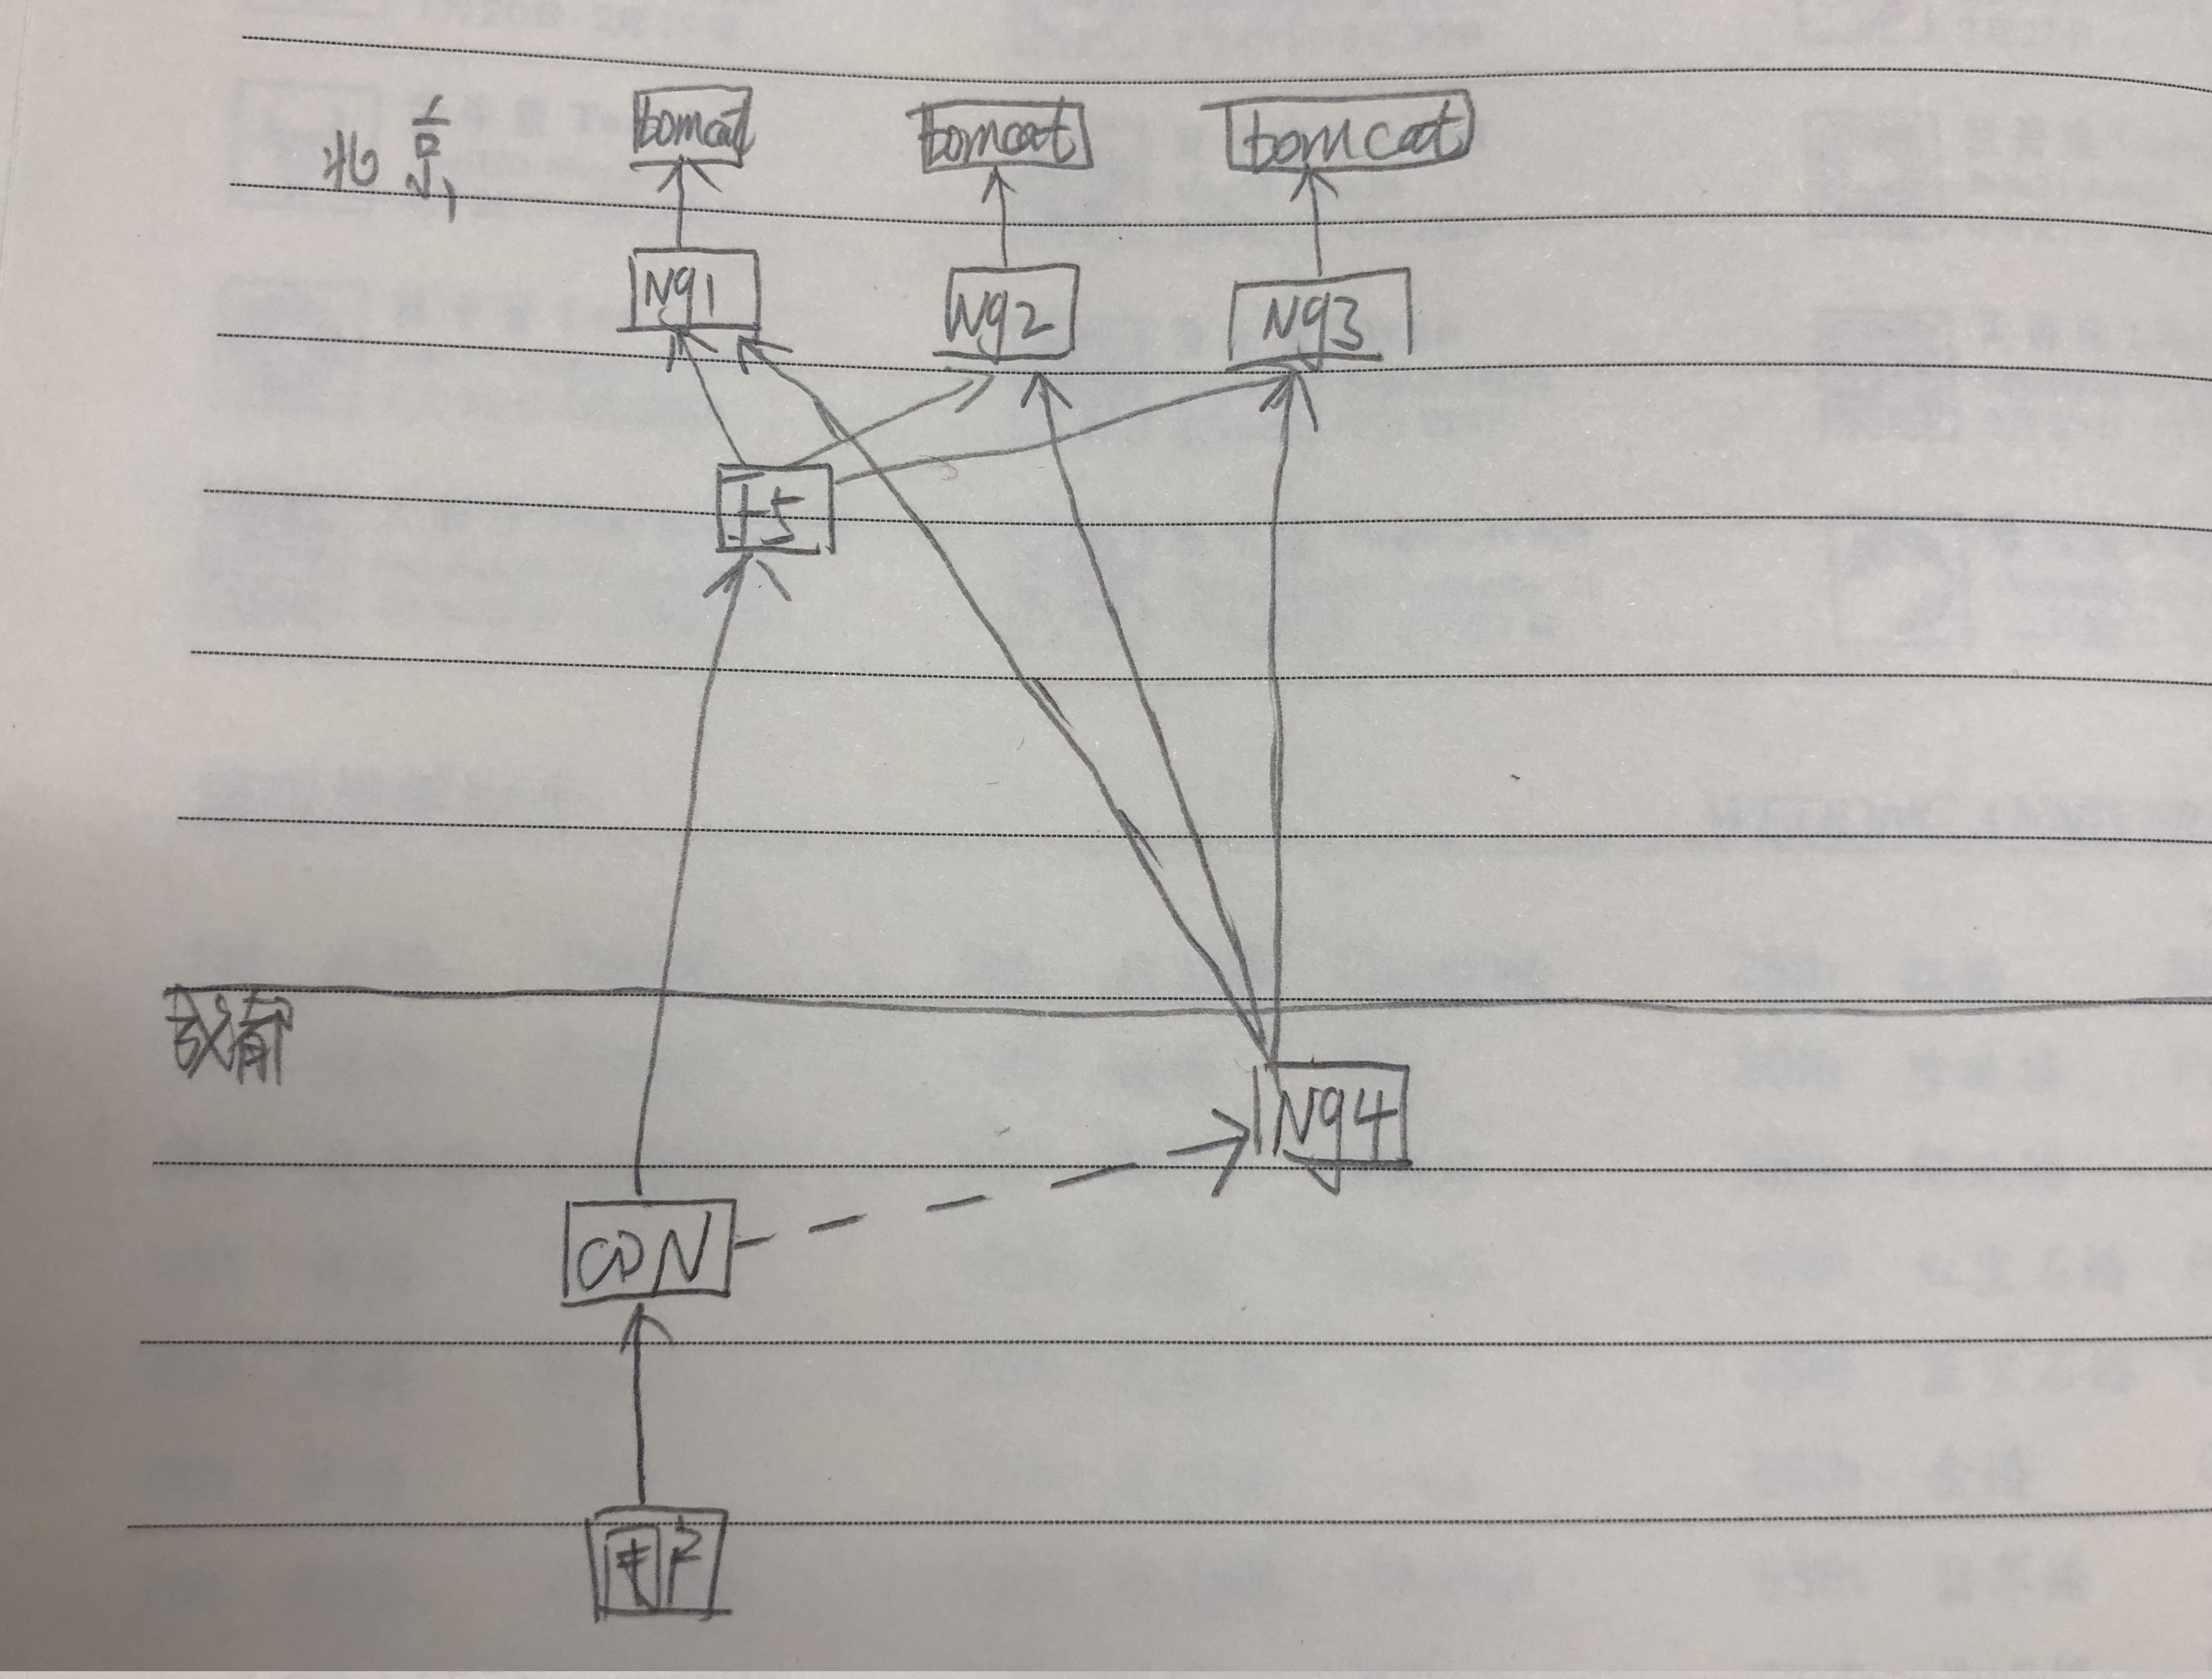 北京
tomcat tomcat tomcat
Ng1 Ng2 Ng3
F5
Ng4
CDN
用户